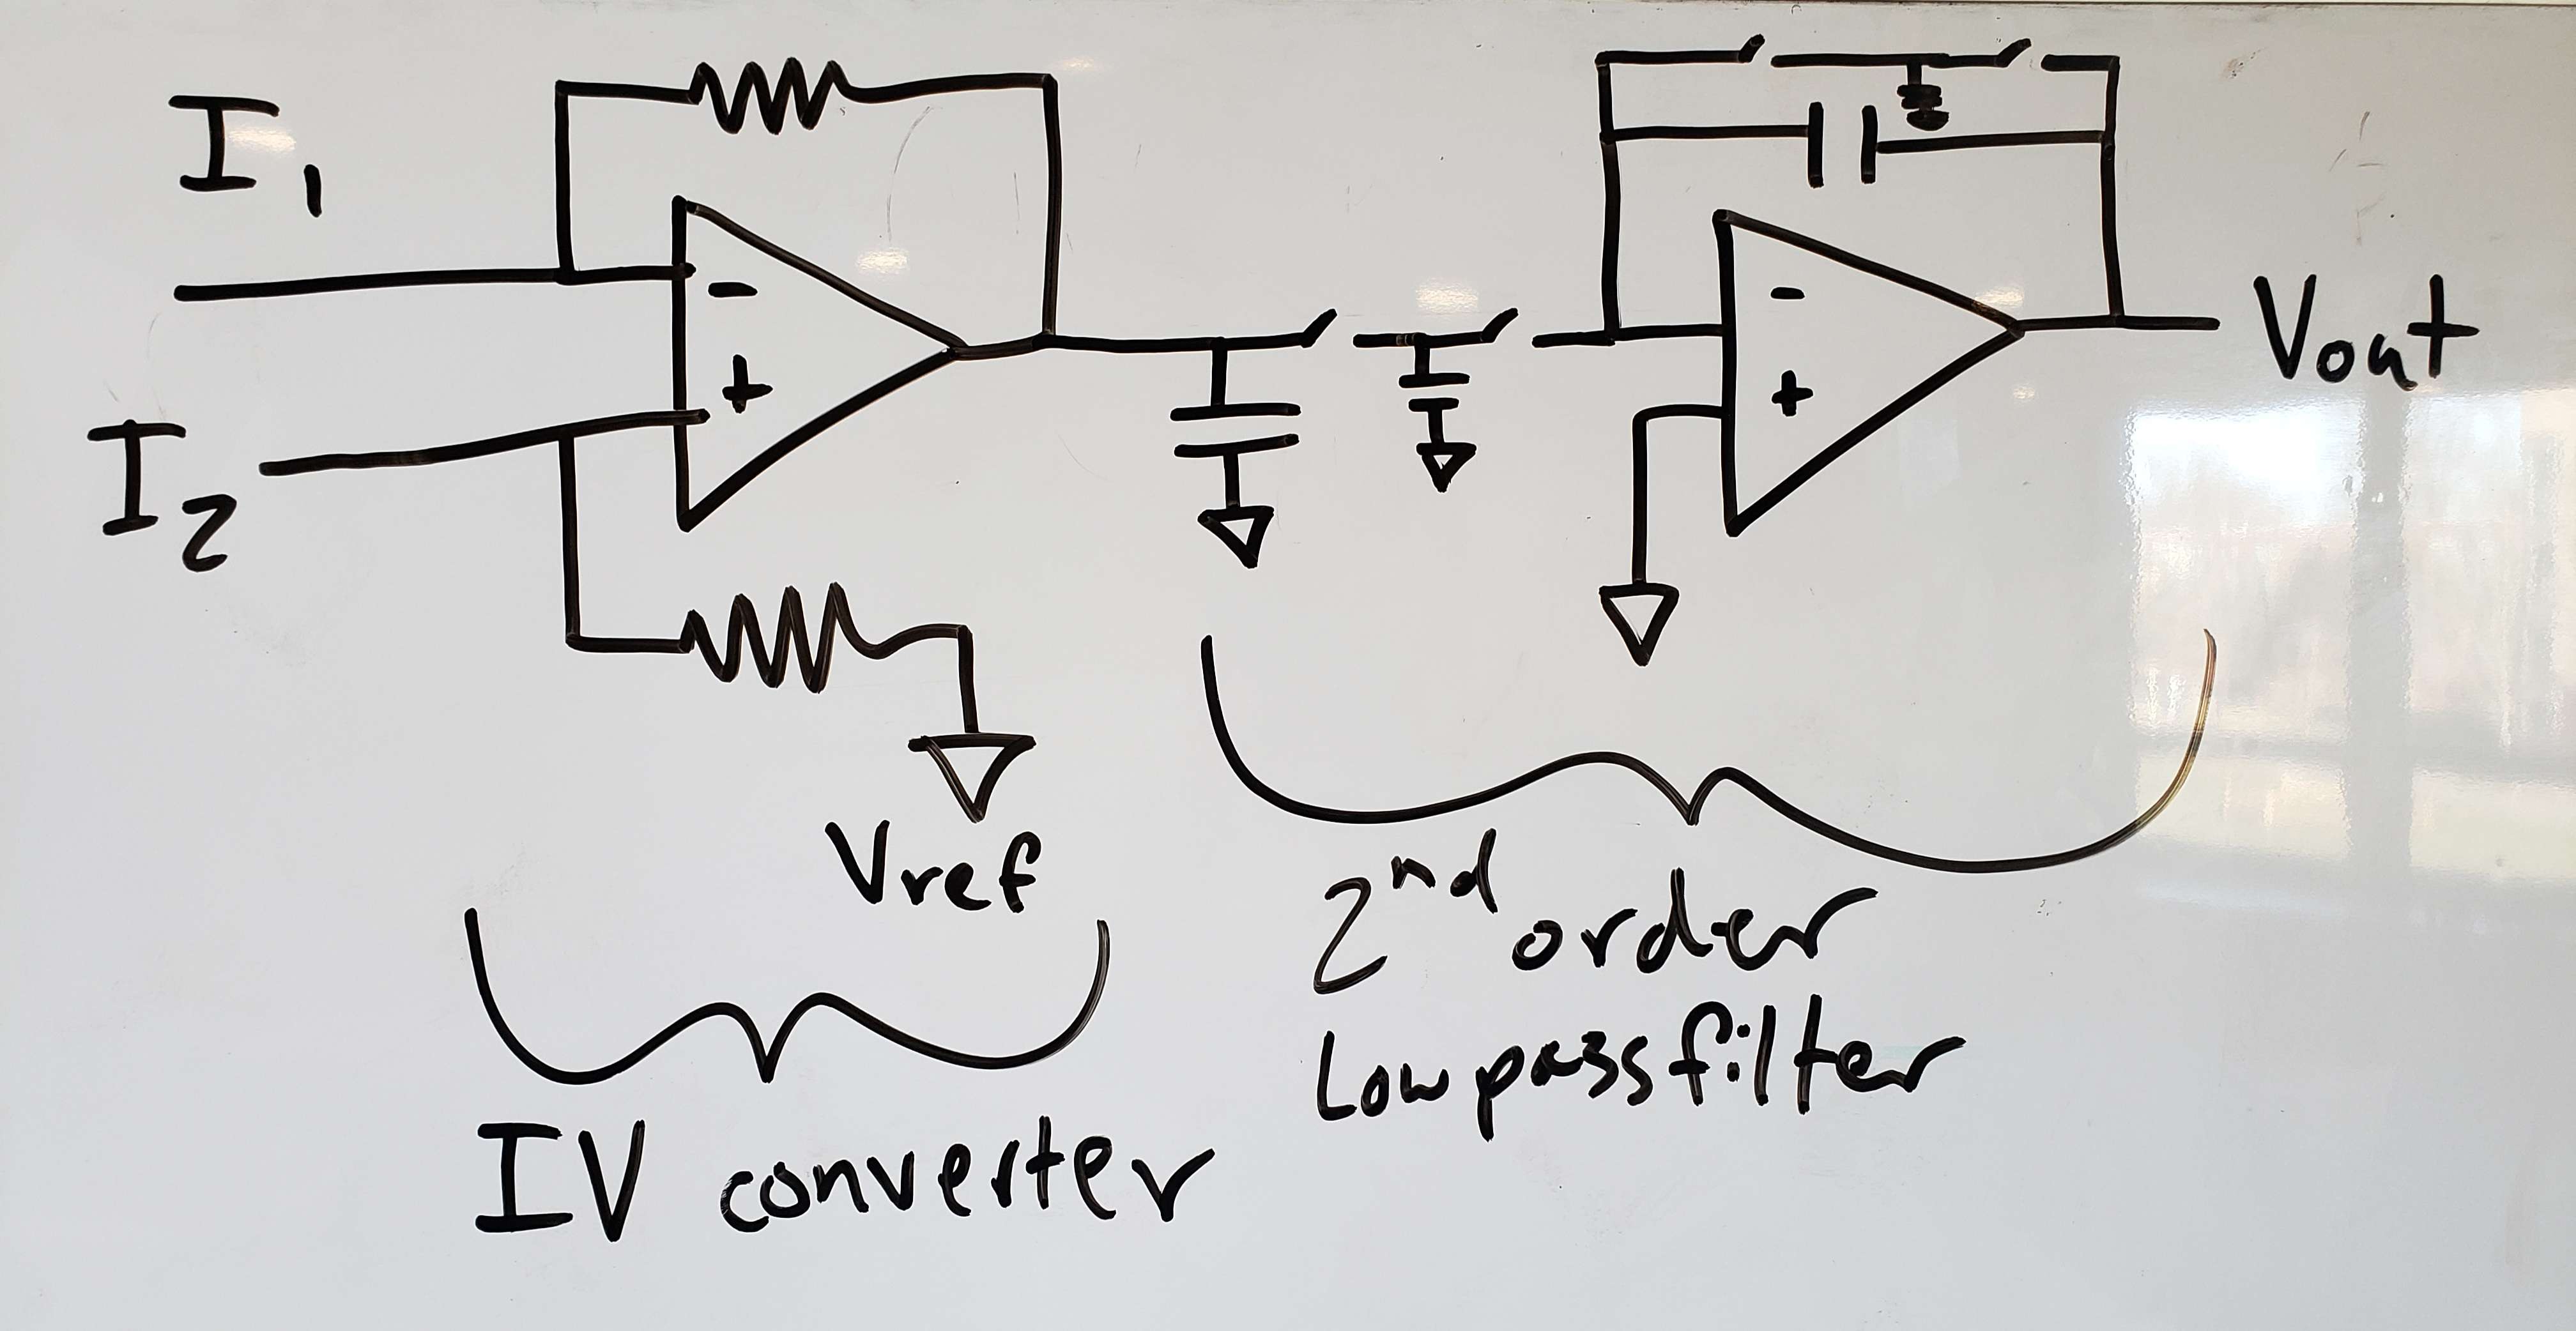 I1
-
+
I2
Vref
IV converter
-
+
Vout
2nd order
Lowpass filter